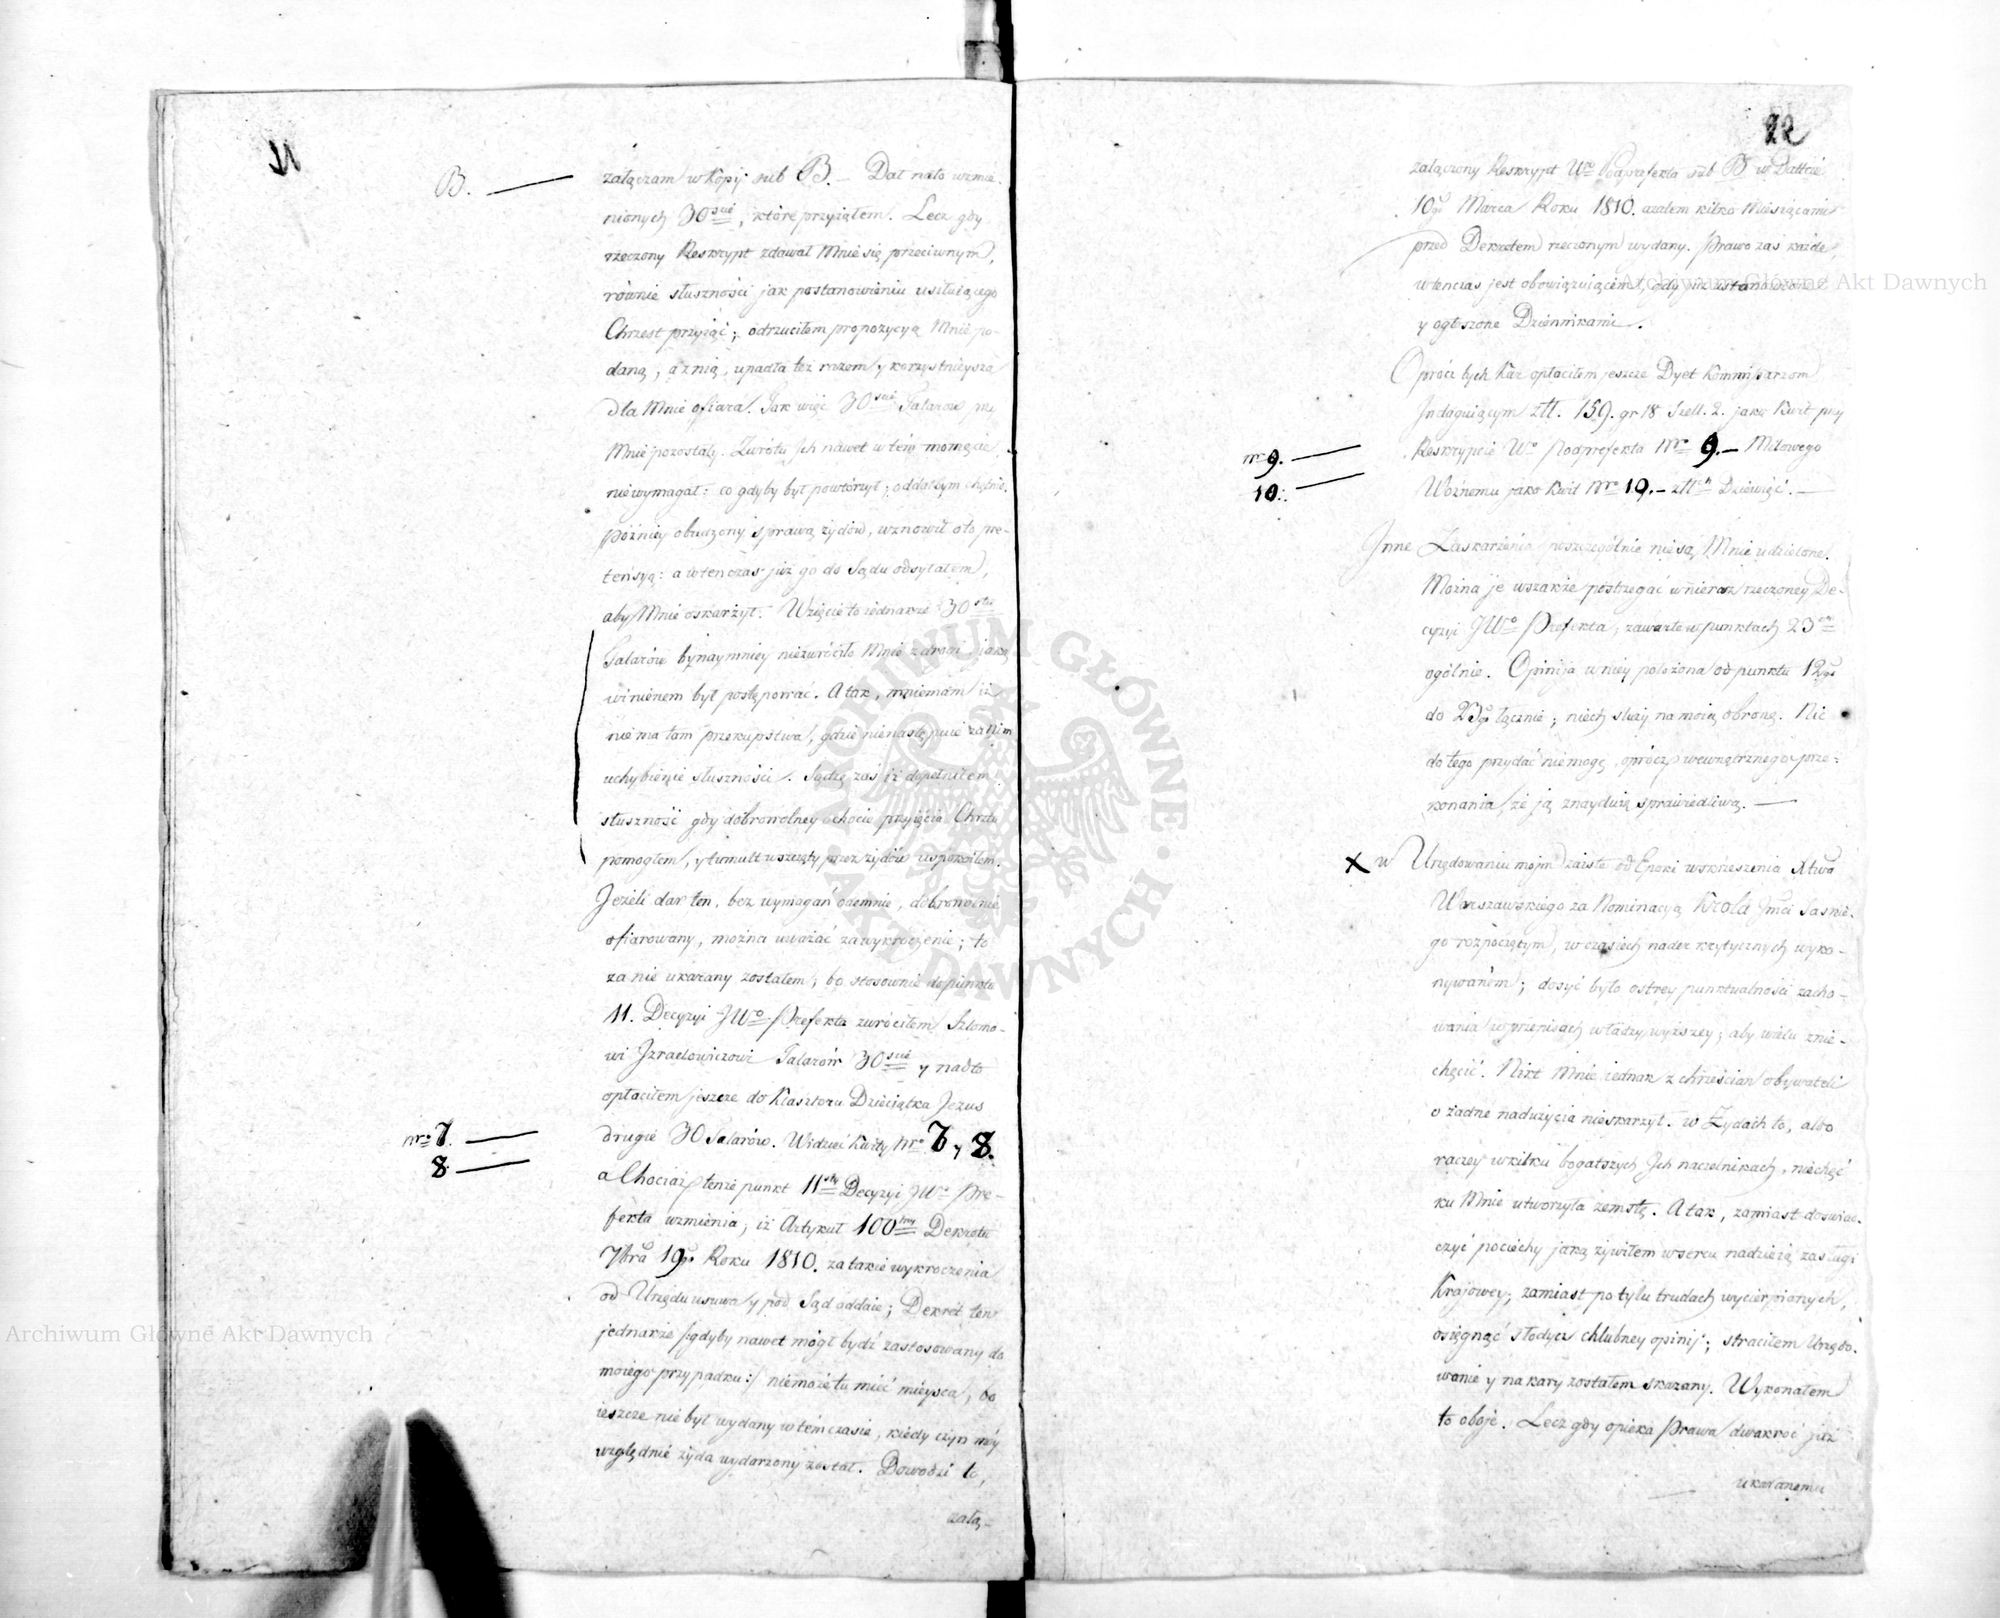 21
B.
załączam w kopij sub B. – Dał nato wzmie-
nionych 30stu, które przyiąłem. Lecz gdy
rzeczony Reskrypt zdawał Mnie się przeciwnym,
równie słuszności jak postanowieniu usiłuiącego
Chrzest przyiąć; odrzuciłem propozycyą Mnie po-
daną, a z nią, upadła też razem y korzystnieysza
dla Mnie ofiara. Jak więc 30stu Talarów przy
Mnie pozostały. Zwrotu Ich nawet w tém momęcie
niewymagał: co gdyby był powtórzył; oddałbym chętnie.
Późniey oburzony sprawą żydów, wznowił oto pre-
tensyą: a wtenczas już go do Sądu odsyłałem,
aby Mnie oskarżył. Wzięcie to iednakże 30stu
Talarów bynaymniey niezwróciło Mnie z drogi, jaką
winienem był postępować. A tak, mniemam iż
niema tam przekupstwa, gdzie nienastępuie zanim
uchybienie słuszności. Sądzę zaś iż dopełniłem
słuszność gdy dobrowolney ochocie przyięcia Chrztu
pomogłem, y tumult wszczęty przez żydów uspokoiłem.
Jeżeli dar ten, bez wymagań odemnie, dobrowolnie
ofiarowany, można uważać za wykroczenie; to
za nie ukarany zostałem; bo stosownie do punktu
11. Decyzyi JWo Prefekta zwróciłem Szlomo-
wi Izraelowiczowi Talarów 30stu y nadto
opłaciłem jeszcze do Klasztoru Dzieciątka Jezus
nro 7.
drugie 30 Talarów. Widzieć Kwity Nro 7 y 8.
8.
a Chociaż tenże punkt 11sty Decyzyi JWo Pre-
fekta wzmienia, iż Artykuł 100tny Dekretu
7bra 19go Roku 1810. za takie wykroczenia
od Urzędu usuwa y pod Sąd oddaie; Dekret ten
jednakże /:gdyby nawet mógł bydź zastosowany do
moiego przypadku:/ niemoże tu mieć mieysca, bo
ieszcze nie był wydany w tém czasie, kiedy czyn móy
względnie żyda wydarzony został. Dowodzi to,
zalą-
22
załączony Reskrypt Wo Podprefekta sub B w Dattcie
10go Marca Roku 1810. azatem kilko Miesiącami
przed Dekretem rzeczonym wydany. Prawo zaś każde,
wtenczas jest obowiązuiącem, gdy iuż ustanowione
y ogłoszone Dziennikami.
Oprócz tych Kar opłaciłem jeszcze Dyet Kommissarzom
Indaguiącym złł. 159. gr 18 Szell. 2. jako Kwit przy
nro 9.
Reskrypcie Wo Podprefekta Nro 9. – Milowego
10.
Woźnemu jako Kwit Nro 10. – złłch Dziewięć. –
Inne Zaskarżenia poszczególnie niesą Mnie udzielone.
Można je wszakże postrzegać w nieraz rzeczoney De-
cyzyi JWo Prefekta, zawarte w punktach 23ch
ogólnie. Opinija w niey położona od punktu 12go
do 23go łącznie; niech służy na moią obronę. Nic
do tego przydać niemogę, oprócz wewnętrznego prze-
konania, że ją znayduię sprawiedliwą. –
X w Urzędowaniu mojm zaiste od Epoki wskrzeszenia Xtwa
Warszawskiego za Nominacyą Króla Jmci Saskie-
go rozpoczętym, w czasiech nader krytycznych wyko-
nywaném; dosyć było ostrey punktualności zacho-
wania w przepisach władzy wyższey; aby wielu znie-
chęcić. Nikt Mnie iednak z chrześcian obywateli
o żadne nadużycia nieskarżył. w Żydach to, albo
raczey w kilku bogatszych Ich naczelnikach, niechęć
ku Mnie utworzyła zemstę. A tak, zamiast doświad-
czyć pociechy jaką żywiłem w sercu nadzieią zasługi
Krajowey; zamiast po tylu trudach wycierpionych,
osięgnąć słodycz chlubney opinij; straciłem Urzędo-
wanie y na kary zostałem skazany. Wykonałem
to oboje. Lecz gdy opieka Prawa dwakroć już
ukaranemu
Archiwum Główne Akt Dawnych
Archiwum Główne Akt Dawnych
ARCHIWUM GŁÓWNE · AKT DAWNYCH ·